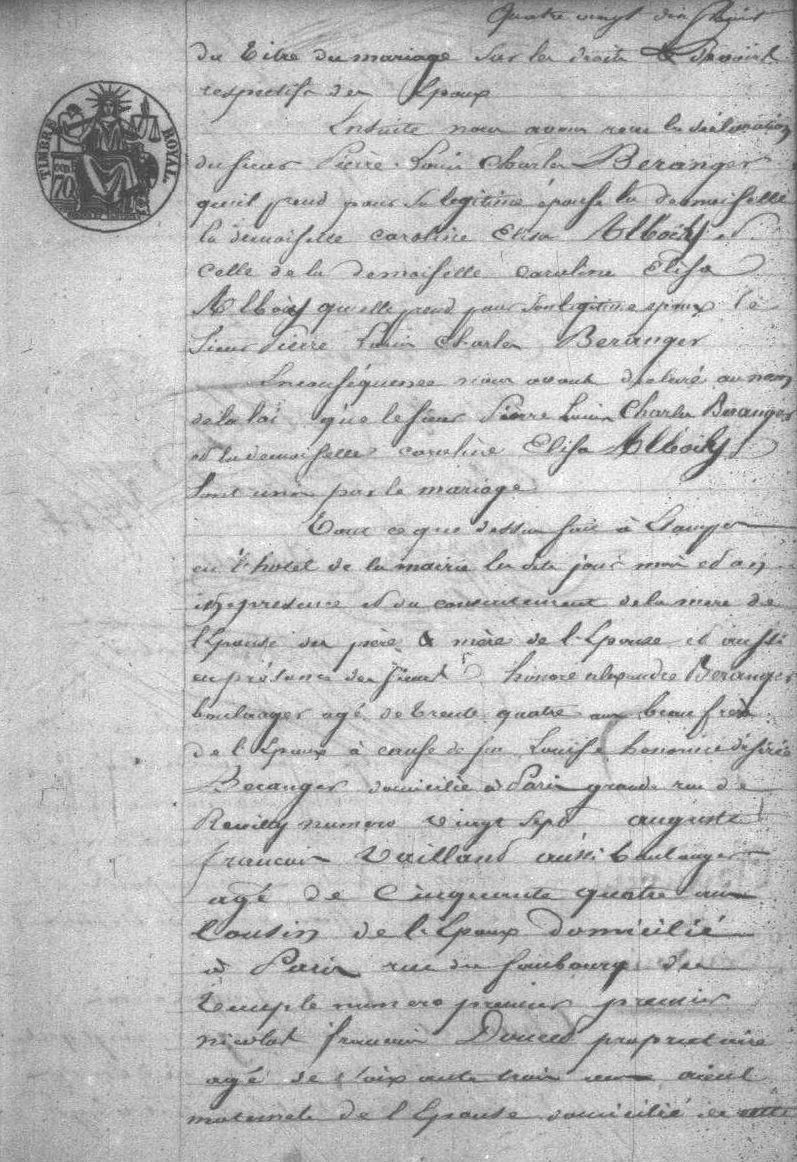 Quatre vingt dix
du titre du mariage sur les droits & Devoirs
respectifs des Epoux
Ensuite nous avons recu la déclaration
du sieur Pierre Louis Charles Beranger
qu'il prend pour sa legitime épouse la demoiselle
la demoiselle Caroline Elisa Alboüy et
Celle de la demoiselle Caroline Elisa
Alboüy qu'elle prend pour son legitime epoux le
Sieur Pierre Louis Charles Beranger
En conséquence nous avons declaré au nom
de la loi que le sieur Pierre Louis Charles Beranger
et la demoiselle Caroline Elisa Alboüy
sont unis par le mariage
Tout ce que dessus fait à Etampes
en l'hotel de la mairie les dits jour mois et an
en presence et du consentement de la mere de
l'Epouse des père & mère de l'Epouse et aussi
en présence des sieurs honoré alexandre Beranger
boulanger agé de trente quatre ans beau frere
de l'Epoux à cause de Louise honorine désirée
Beranger domicilié à Paris grande rue de
Reuilly numero vingt sept auguste
francois Vaillant aussi boulanger
agé de Cinquante quatre ans
Cousin de l'Epoux domicilié
à Paris rue du faubourg du
Temple numero premier premier
nicolas francois Doucet propriétaire
agé de soixante trois ans aieul
maternel de l'Epouse domicilié en cette